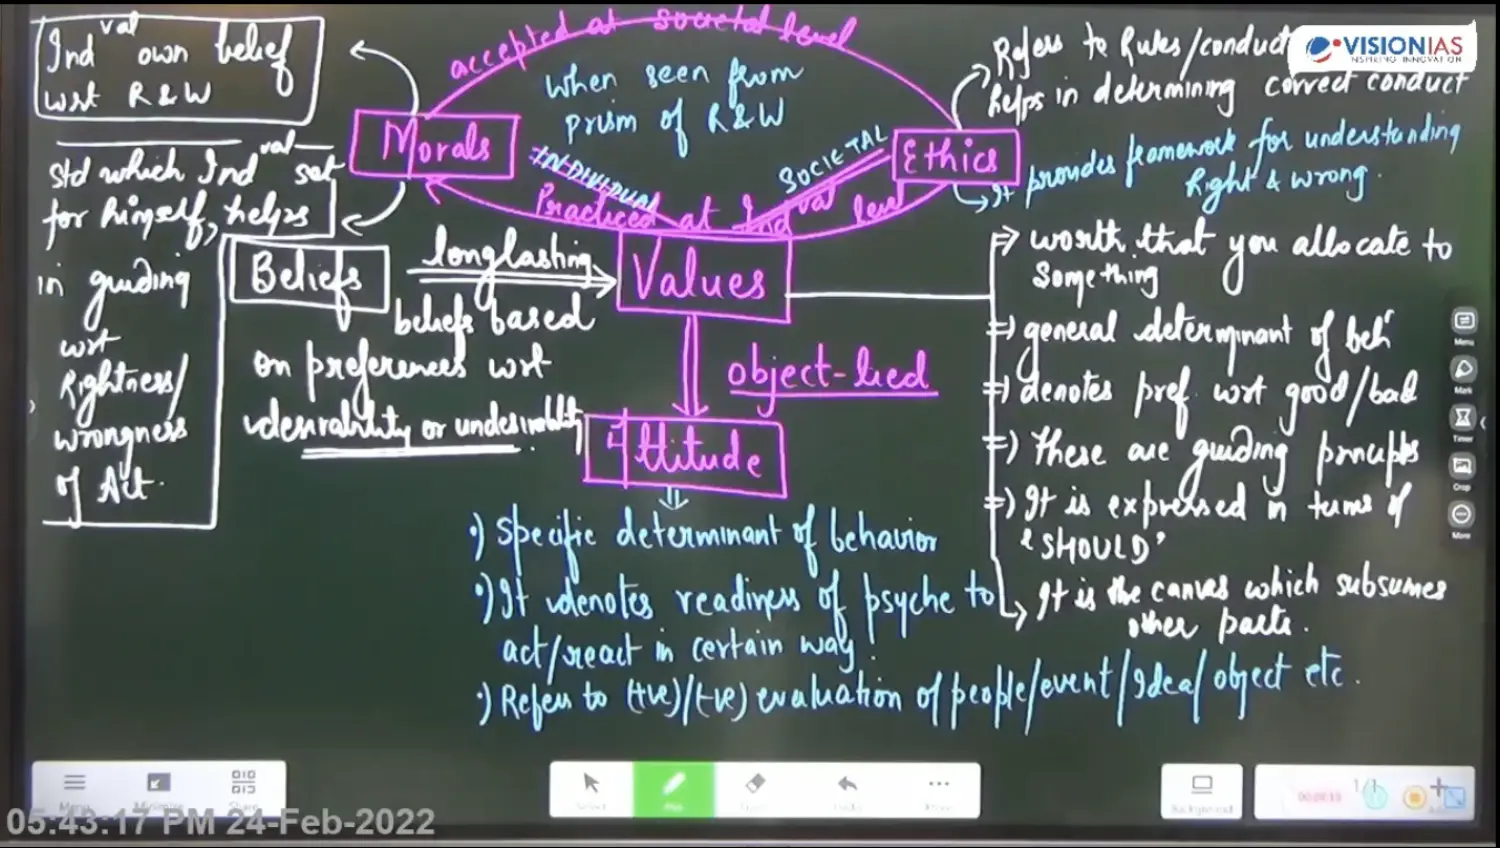 Ind^val own belief
wrt R&W
accepted at societal level
When seen from
prism of R&W
Refers to Rules/conduct
helps in determining correct conduct
VISIONIAS
INSPIRING INNOVATION
Morals
INDIVIDUAL
SOCIETAL
Ethics
It provides framework for understanding
Right & wrong.
Practiced at Ind^val level
std which Ind^val set
for himself, helps
in guiding
wrt
Rightness/
wrongness
of Act.
Beliefs
longlasting
beliefs based
on preferences wrt
desirability or undesirability.
Values
object-lied
Attitude
=> worth that you allocate to
something
=> general determinant of beh^r
=> denotes pref. wrt good/bad
=) These are guiding principles
=) It is expressed in terms of
'SHOULD'
It is the canvas which subsumes
other parts.
•) Specific determinant of behavior
•) It denotes readiness of psyche to
act/react in certain way.
•) Refers to (+ve)/(-ve) evaluation of people/event/Idea/object etc.
Menu
Mark
Timer
Crop
More
Menu
Minimize
Share
Select
Background
1/1
05:43:17 PM 24-Feb-2022